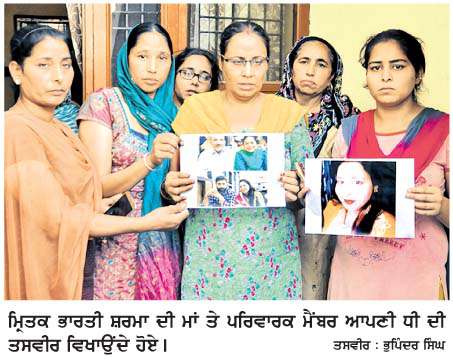 ਮ੍ਰਿਤਕ ਭਾਰਤੀ ਸ਼ਰਮਾ ਦੀ ਮਾਂ ਤੇ ਪਰਿਵਾਰਕ ਮੈਂਬਰ ਆਪਣੀ ਧੀ ਦੀ
ਤਸਵੀਰ ਵਿਖਾਉਂਦੇ ਹੋਏ। ਤਸਵੀਰ : ਭੁਪਿੰਦਰ ਸਿੰਘ